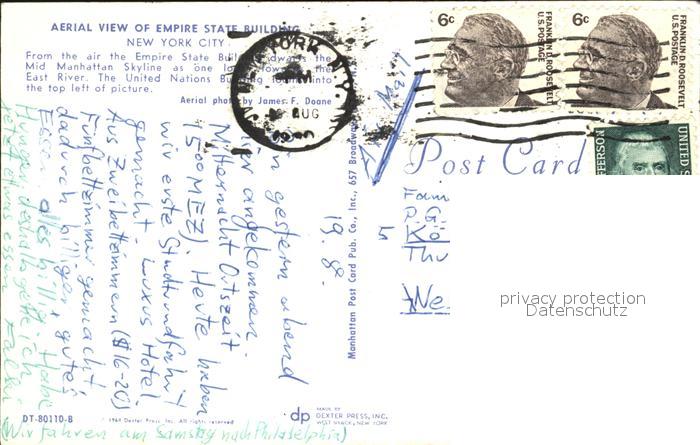 AERIAL VIEW OF EMPIRE STATE BUILDING
NEW YORK CITY
From the air the Empire State
Mid Manhattan Skyline as one
East River. The United Nations
the top left of picture.
Aerial photo by James F. Doane
NEW YORK, N.Y.
AUG
6c
FRANKLIN D. ROOSEVELT
U.S. POSTAGE
6c
FRANKLIN D. ROOSEVELT
U.S. POSTAGE
UNITED S
JEFFERSON
Post Card
Fam
P.G.
Kö
Thu
We
privacy protection
Datenschutz
19. 8.
gestern abend
hier angekommen.
Mitternacht Ortszeit
(500 MEZ). Heute haben
wir erste Stadtrundfahrt
gemacht. Luxus Hotel
Aus Zweibettzimmern ($16-20)
Fünfbettzimmer gemacht
dadurch billiger, gutes
Essen, alles billig. Habe
Hunger, deshalb gehe ich
jetzt etwas essen
(Wir fahren am Samstag nach Philadelphia)
Manhattan Post Card Pub. Co., Inc., 657 Broadway
DT-80110-B
© 1964 Dexter Press, Inc. All rights reserved
dp
MADE BY
DEXTER PRESS, INC.
WEST NYACK, NEW YORK